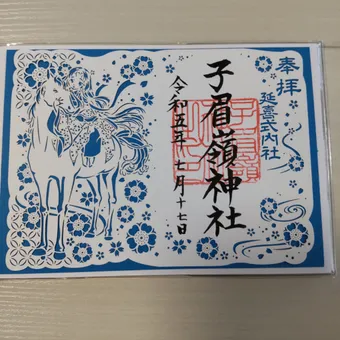 奉拝
延喜式内社
子眉嶺神社
令和五年七月十七日